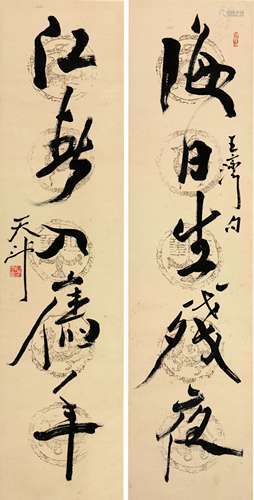 海日生残夜
王湾句
江春入旧年
天沛